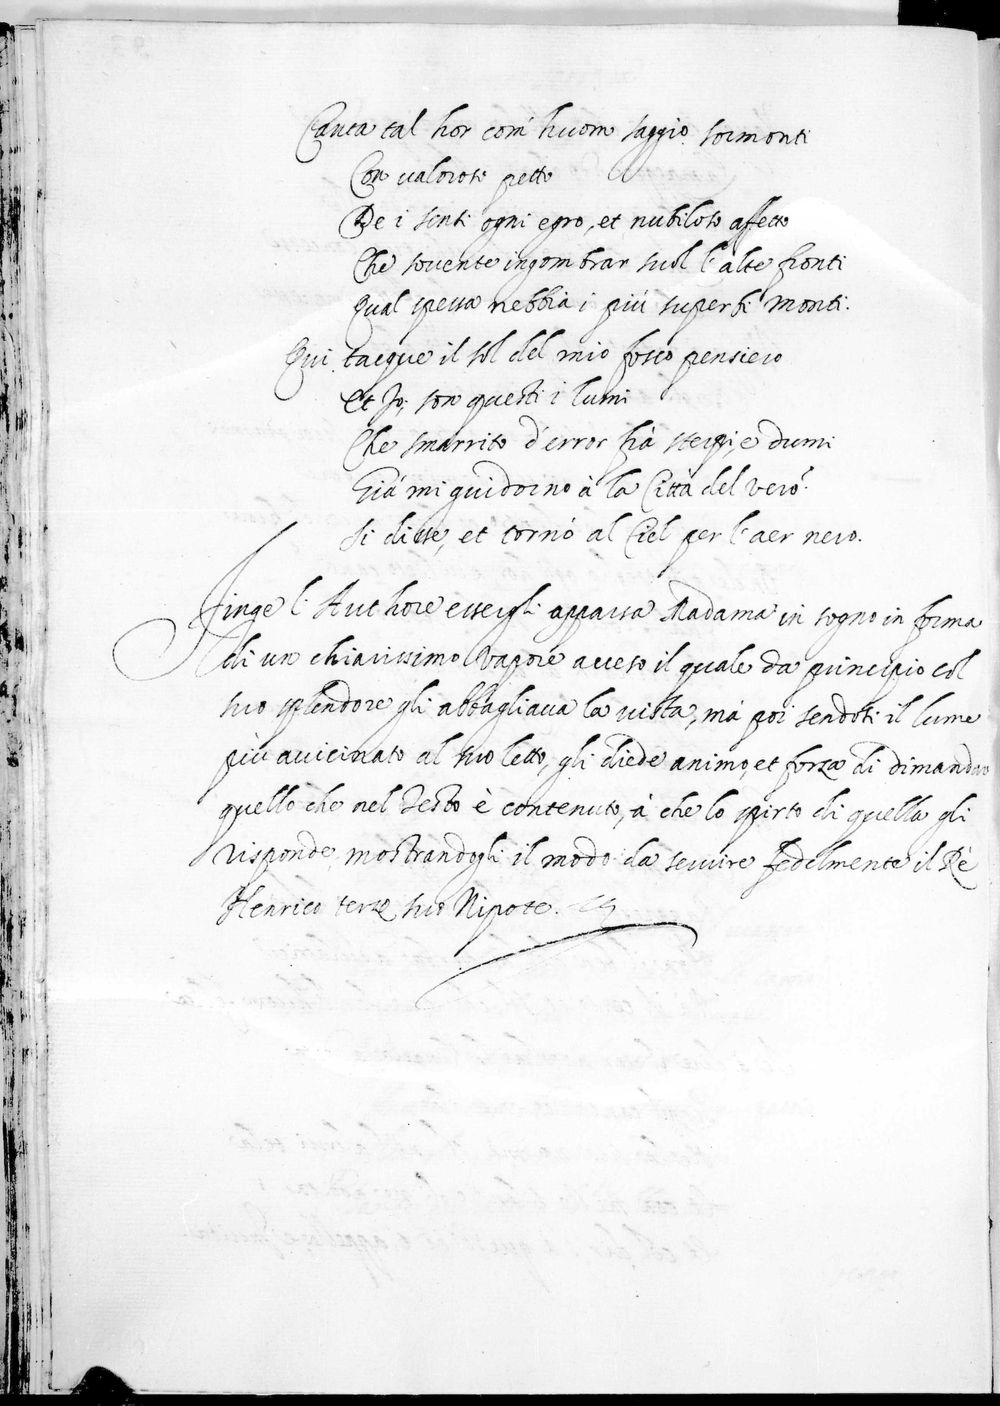 Canta tal hor com' huom saggio sormonti
Con valoroso petto
De i sensi ogni egro, et nubiloso affetto
Che sovente ingombrar suol l'alte fronti
Qual spessa nebbia i più superbi monti.
Qui tacque il sol del mio fosco pensiero
Et Io; son questi i lumi
Che smarrito d'error frà sterpi, e dumi
Già mi guidorno à la Città del vero?
Si disse, et tornò al Ciel per l'aer nero.
Finge l'Authore essergli apparsa Madama in sogno in forma
di un chiarissimo Vapore acceso il quale da principio col
suo splendore gli abbagliava la vista, mà poi sendosi il lume
più avicinato al suo letto, gli diede animo, et forza di dimandar
quello che nel Testo è contenuto, à che lo spirto di quella gli
risponde, mostrandogli il modo da servire fedelmente il Rè
Henrico terzo suo Nipote.